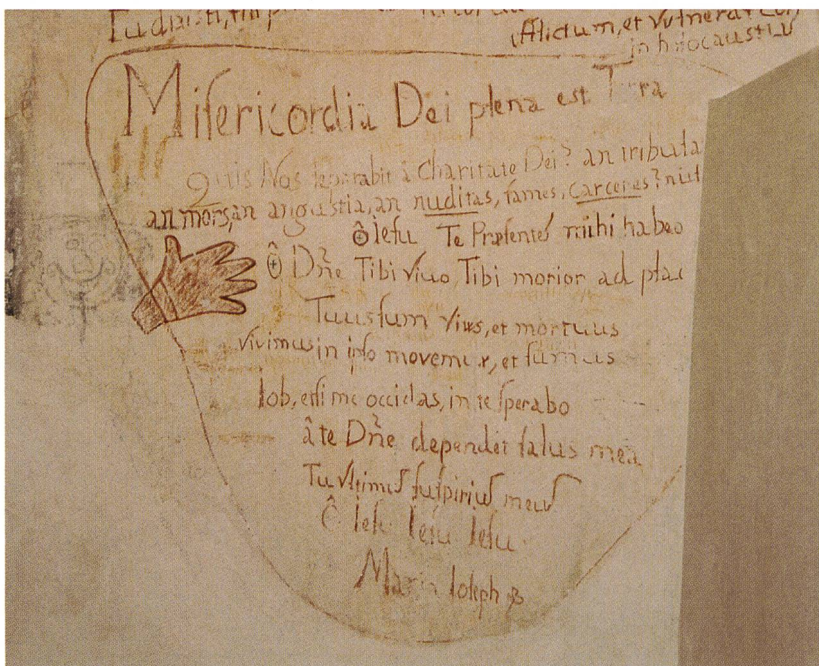 Afflictum, et vulneratum
in holocaustu
Misericordia Dei plena est Terra
Quis Nos separabit â Charitate Dei? an tribula
an mors, an angustia, an nuditas, fames, carceres? niul
ô Iesu Te Præsentem mihi habeo
ô Dñe Tibi vivo, Tibi morior ad plac
Tuus sum vivus, et mortuus
vivimus in ipso movemur, et sumus
Iob, etsi me occidas, in te sperabo
â te Dñe dependet salus mea
Tu ultimus suspirius meus
Ô Iesu Iesu Iesu
Maria Ioseph